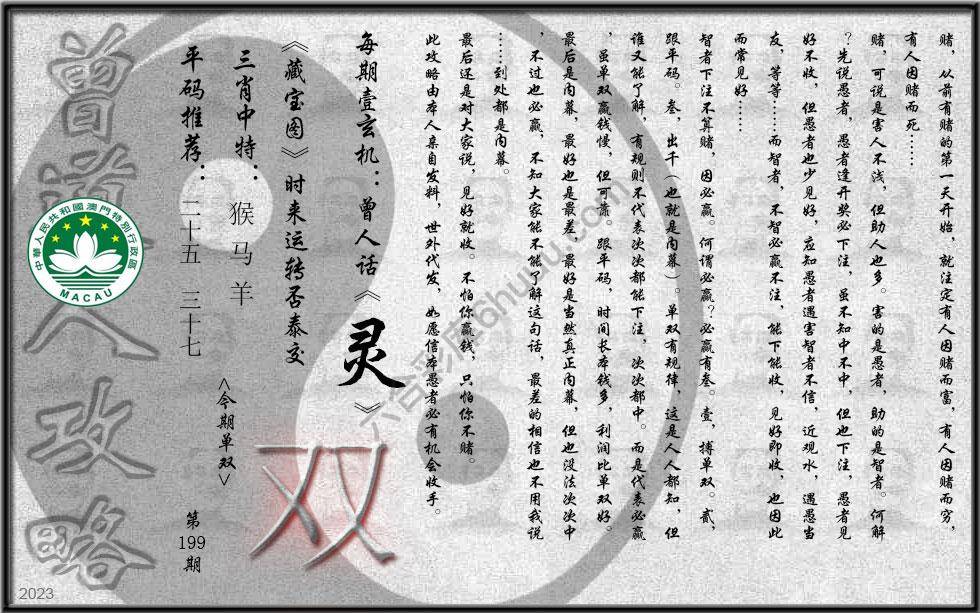 赌，从前有赌的第一天开始，就注定有人因赌而富，有人因赌而穷，
有人因赌而死……
赌，可说是害人不浅，但助人也多。害的是愚者，助的是智者。何解
？先说愚者，愚者逢开奖必下注，虽不知中不中，但也下注，愚者见
好不收，但愚者也少见好，应知愚者遇害智者不信，近观水，遇愚当
友，等等……而智者，不智必赢不注，能下能收，见好即收，也因此
而常见好……
智者下注不算赌，因必赢，何谓必赢？必赢有叁。壹，搏单双。贰，
跟平码。叁，出千（也就是内幕）。单双有规律，这是人人都知，但
谁又能了解，有规则不代表次次都能下注，次次都中。而是代表必赢
，虽单双赢钱慢，但可靠。跟平码，时间长本钱多，利润比单双好。
最后是内幕，最好也是最差，最好是当然真正内幕，但也没法次次中
，不过也必赢，不知大家能不能了解这句话，最差的相信也不用我说
……到处都是内幕。
最后还是对大家说，见好就收。不怕你赢钱，只怕你不赌。
此攻略由本人亲自发料，世外代发，如愿信本愚者必有机会收手。
每期壹玄机：曾人话《灵》
《藏宝图》时来运转否泰交
三肖中特：猴马羊
平码推荐：二十五 三十七
<今期单双>
双
第199期
曾道人攻略
中華人民共和國澳門特別行政區
MACAU
六合彩库6huhu.com
2023